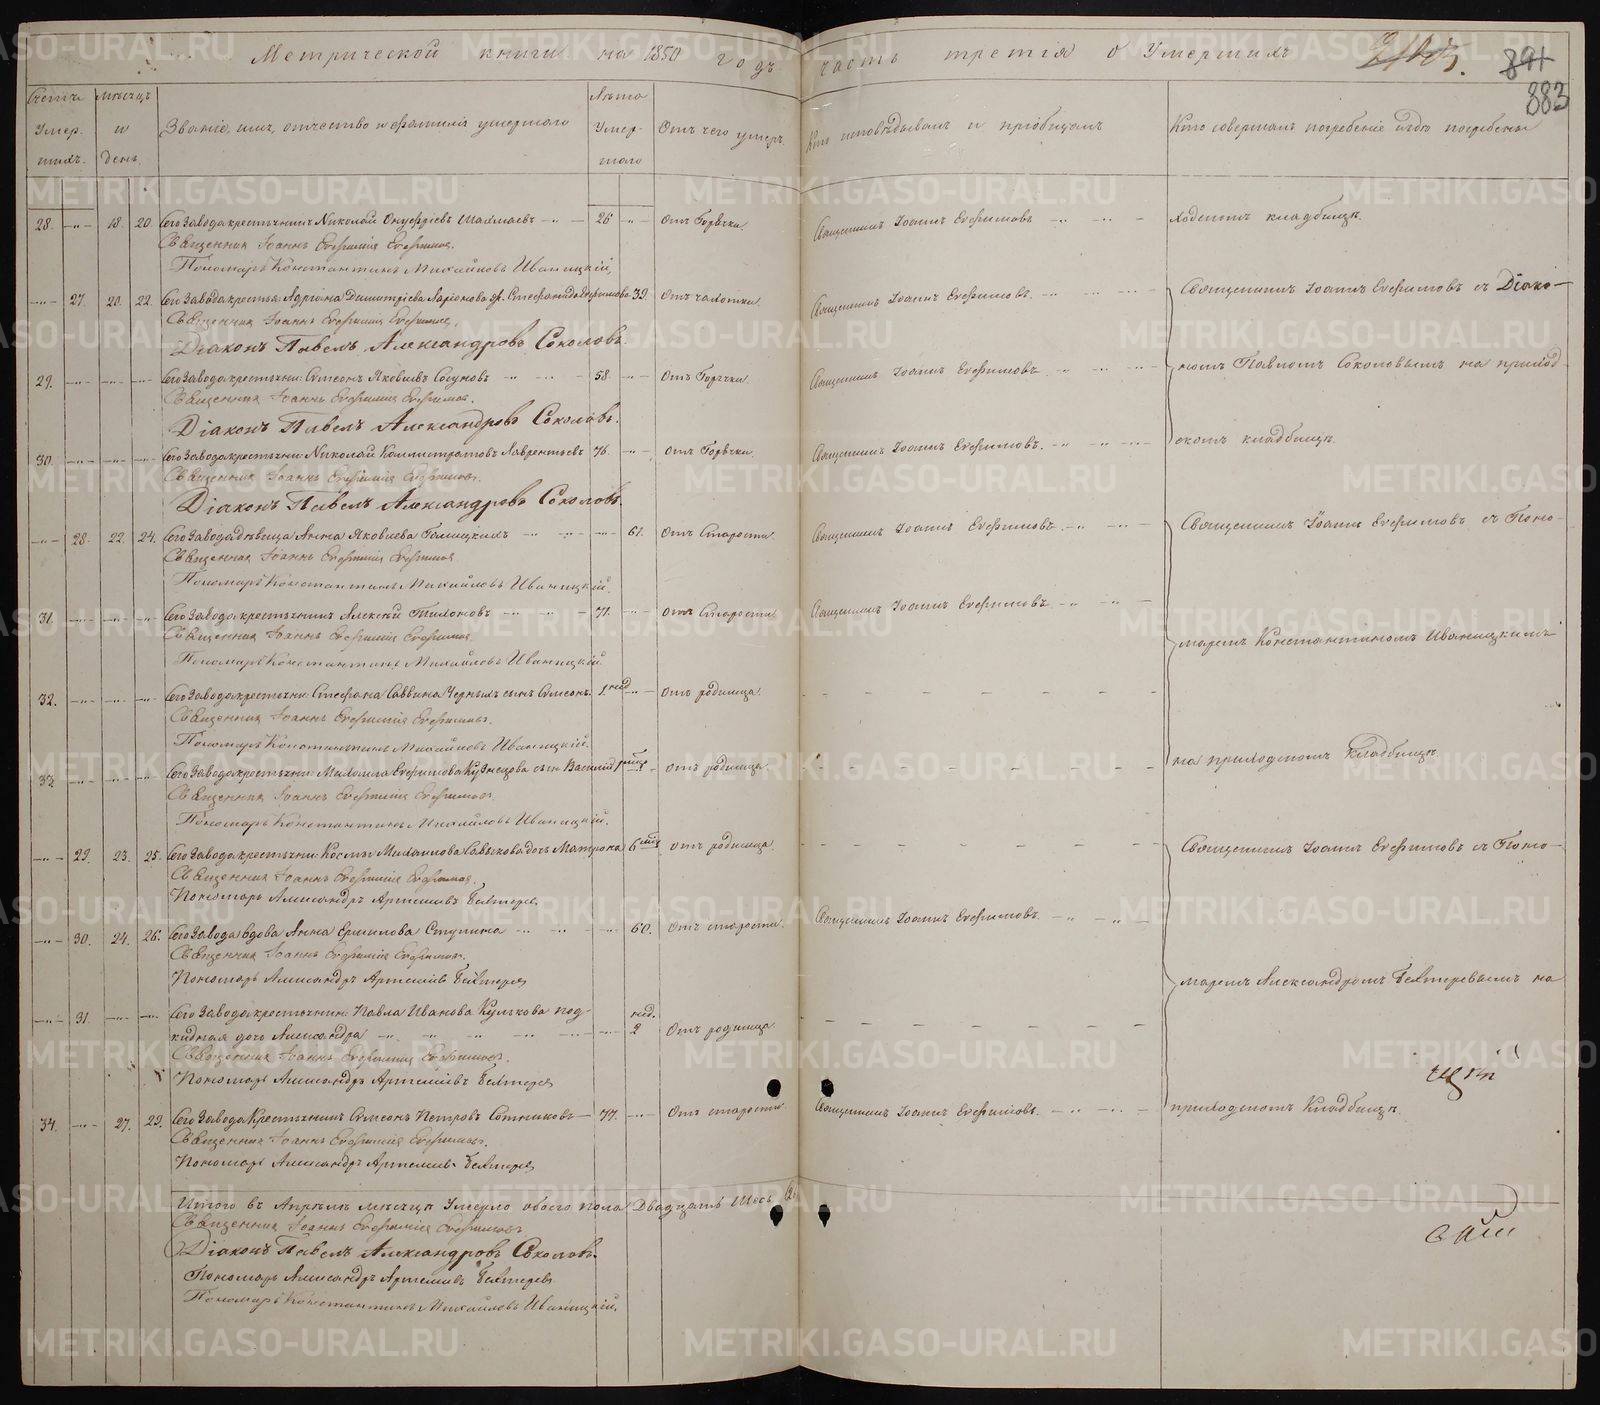 Метрической книги на 1850 годъ часть третія о Умершихъ
841
883
Счетъ Умер- шихъ.
Мѣсяцъ и день.
Званіе, имя, отчество и фамилія умершаго
Лѣта Умер- шаго
Отъ чего умеръ
Кто исповѣдывалъ и пріобщалъ
Кто совершалъ погребеніе и гдѣ погребены
28. 18. 20. Сего Завода крестьянинъ Николай Онуфріевъ 26 Отъ Горячки Священникъ Іоаннъ Евфимовъ ходскомъ кладбищѣ.
Священникъ Іоаннъ Евфиміевъ Евфимовъ.
Пономарь Константинъ Михайловъ Иваницкій.
27. 20. 22. Сего Завода крестья: Адріана Димитріева Ларіонова 39. Отъ чахотки Священникъ Іоаннъ Евфимовъ. Священникъ Іоаннъ Евфимовъ съ Діако-
Священникъ Іоаннъ Евфиміевъ Евфимовъ.
Діаконъ Павелъ Александровъ Соколовъ.
29. Сего Завода крестьяни: Симеонъ Яковлевъ Сосуновъ 58. Отъ Горячки Священникъ Іоаннъ Евфимовъ номъ Павломъ Соколовымъ на приход-
Священникъ Іоаннъ Евфиміевъ Евфимовъ.
Діаконъ Павелъ Александровъ Соколовъ.
30. Сего Завода крестьяни: Николай Каллистратовъ Лаврентьевъ 76. Отъ Горячки Священникъ Іоаннъ Евфимовъ. скомъ кладбищѣ.
Священникъ Іоаннъ Евфиміевъ Евфимовъ.
Діаконъ Павелъ Александровъ Соколовъ.
28. 22. 24. Сего Завода дѣвица Анна Яковлева Галицкихъ 61. Отъ Старости Священникъ Іоаннъ Евфимовъ Священникъ Іоаннъ Евфимовъ съ Поно-
Священникъ Іоаннъ Евфиміевъ Евфимовъ
Пономарь Константинъ Михайловъ Иваницкій.
31. Сего Завода крестьянинъ Алексѣй Тихоновъ 71. Отъ Старости Священникъ Іоаннъ Евфимовъ
Священникъ Іоаннъ Евфиміевъ Евфимовъ.
маремъ Константиномъ Иваницкимъ
Пономарь Константинъ Михайловъ Иваницкій.
32. Сего Завода крестьяни: Стефана Саввина Черныхъ сынъ Симеонъ. 1 нед Отъ родимца
Священникъ Іоаннъ Евфиміевъ Евфимовъ.
Пономарь Константинъ Михайловъ Иваницкій.
на приходскомъ кладбищѣ.
33. Сего Завода крестьяни: Михаила Евфимова Кузнецова сын Василій Отъ родимца
Священникъ Іоаннъ Евфиміевъ Евфимовъ.
Пономарь Константинъ Михайловъ Иваницкій.
29. 23. 25. Сего Завода крестьяни: Космы Михаилова дочь Матрона 6 Отъ родимца Священникъ Іоаннъ Евфимовъ съ Поно-
Священникъ Іоаннъ Евфиміевъ Евфимовъ.
Пономарь Александръ Артемьевъ Бехтеревъ
30. 24. 26. Сего Завода вдова Анна Ермилова Ступина 60. Отъ старости. Священникъ Іоаннъ Евфимовъ
Священникъ Іоаннъ Евфиміевъ Евфимовъ.
Пономарь Александръ Артемьевъ Бехтеревъ
маремъ Александромъ Бехтеревымъ на
31. Сего Завода крестьянин: Павла Иванова Кулькова под- нед.
кидная дочь Александра 2 Отъ родимца
Священникъ Іоаннъ Евфиміевъ Евфимовъ.
Пономарь Александръ Артеміевъ Бехтеревъ
34. 27. 29. Сего Завода Крестьянинъ Симеонъ Петровъ Сотниковъ 77. Отъ старости Священникъ Іоаннъ Евфимовъ. приходскомъ Кладбищѣ.
Священникъ Іоаннъ Евфиміевъ Евфимовъ.
Пономарь Александръ Артемьевъ Бехтеревъ
Итого въ Апрѣлѣ мѣсяцѣ Умерло обоего пола Двадцать Шесть
Священникъ Іоаннъ Евфиміевъ Евфимовъ
Діаконъ Павелъ Александровъ Соколовъ.
Пономарь Александръ Артемьевъ Бехтеревъ
Пономарь Константинъ Михайловъ Иваницкій.
METRIKI.GASO-URAL.RU